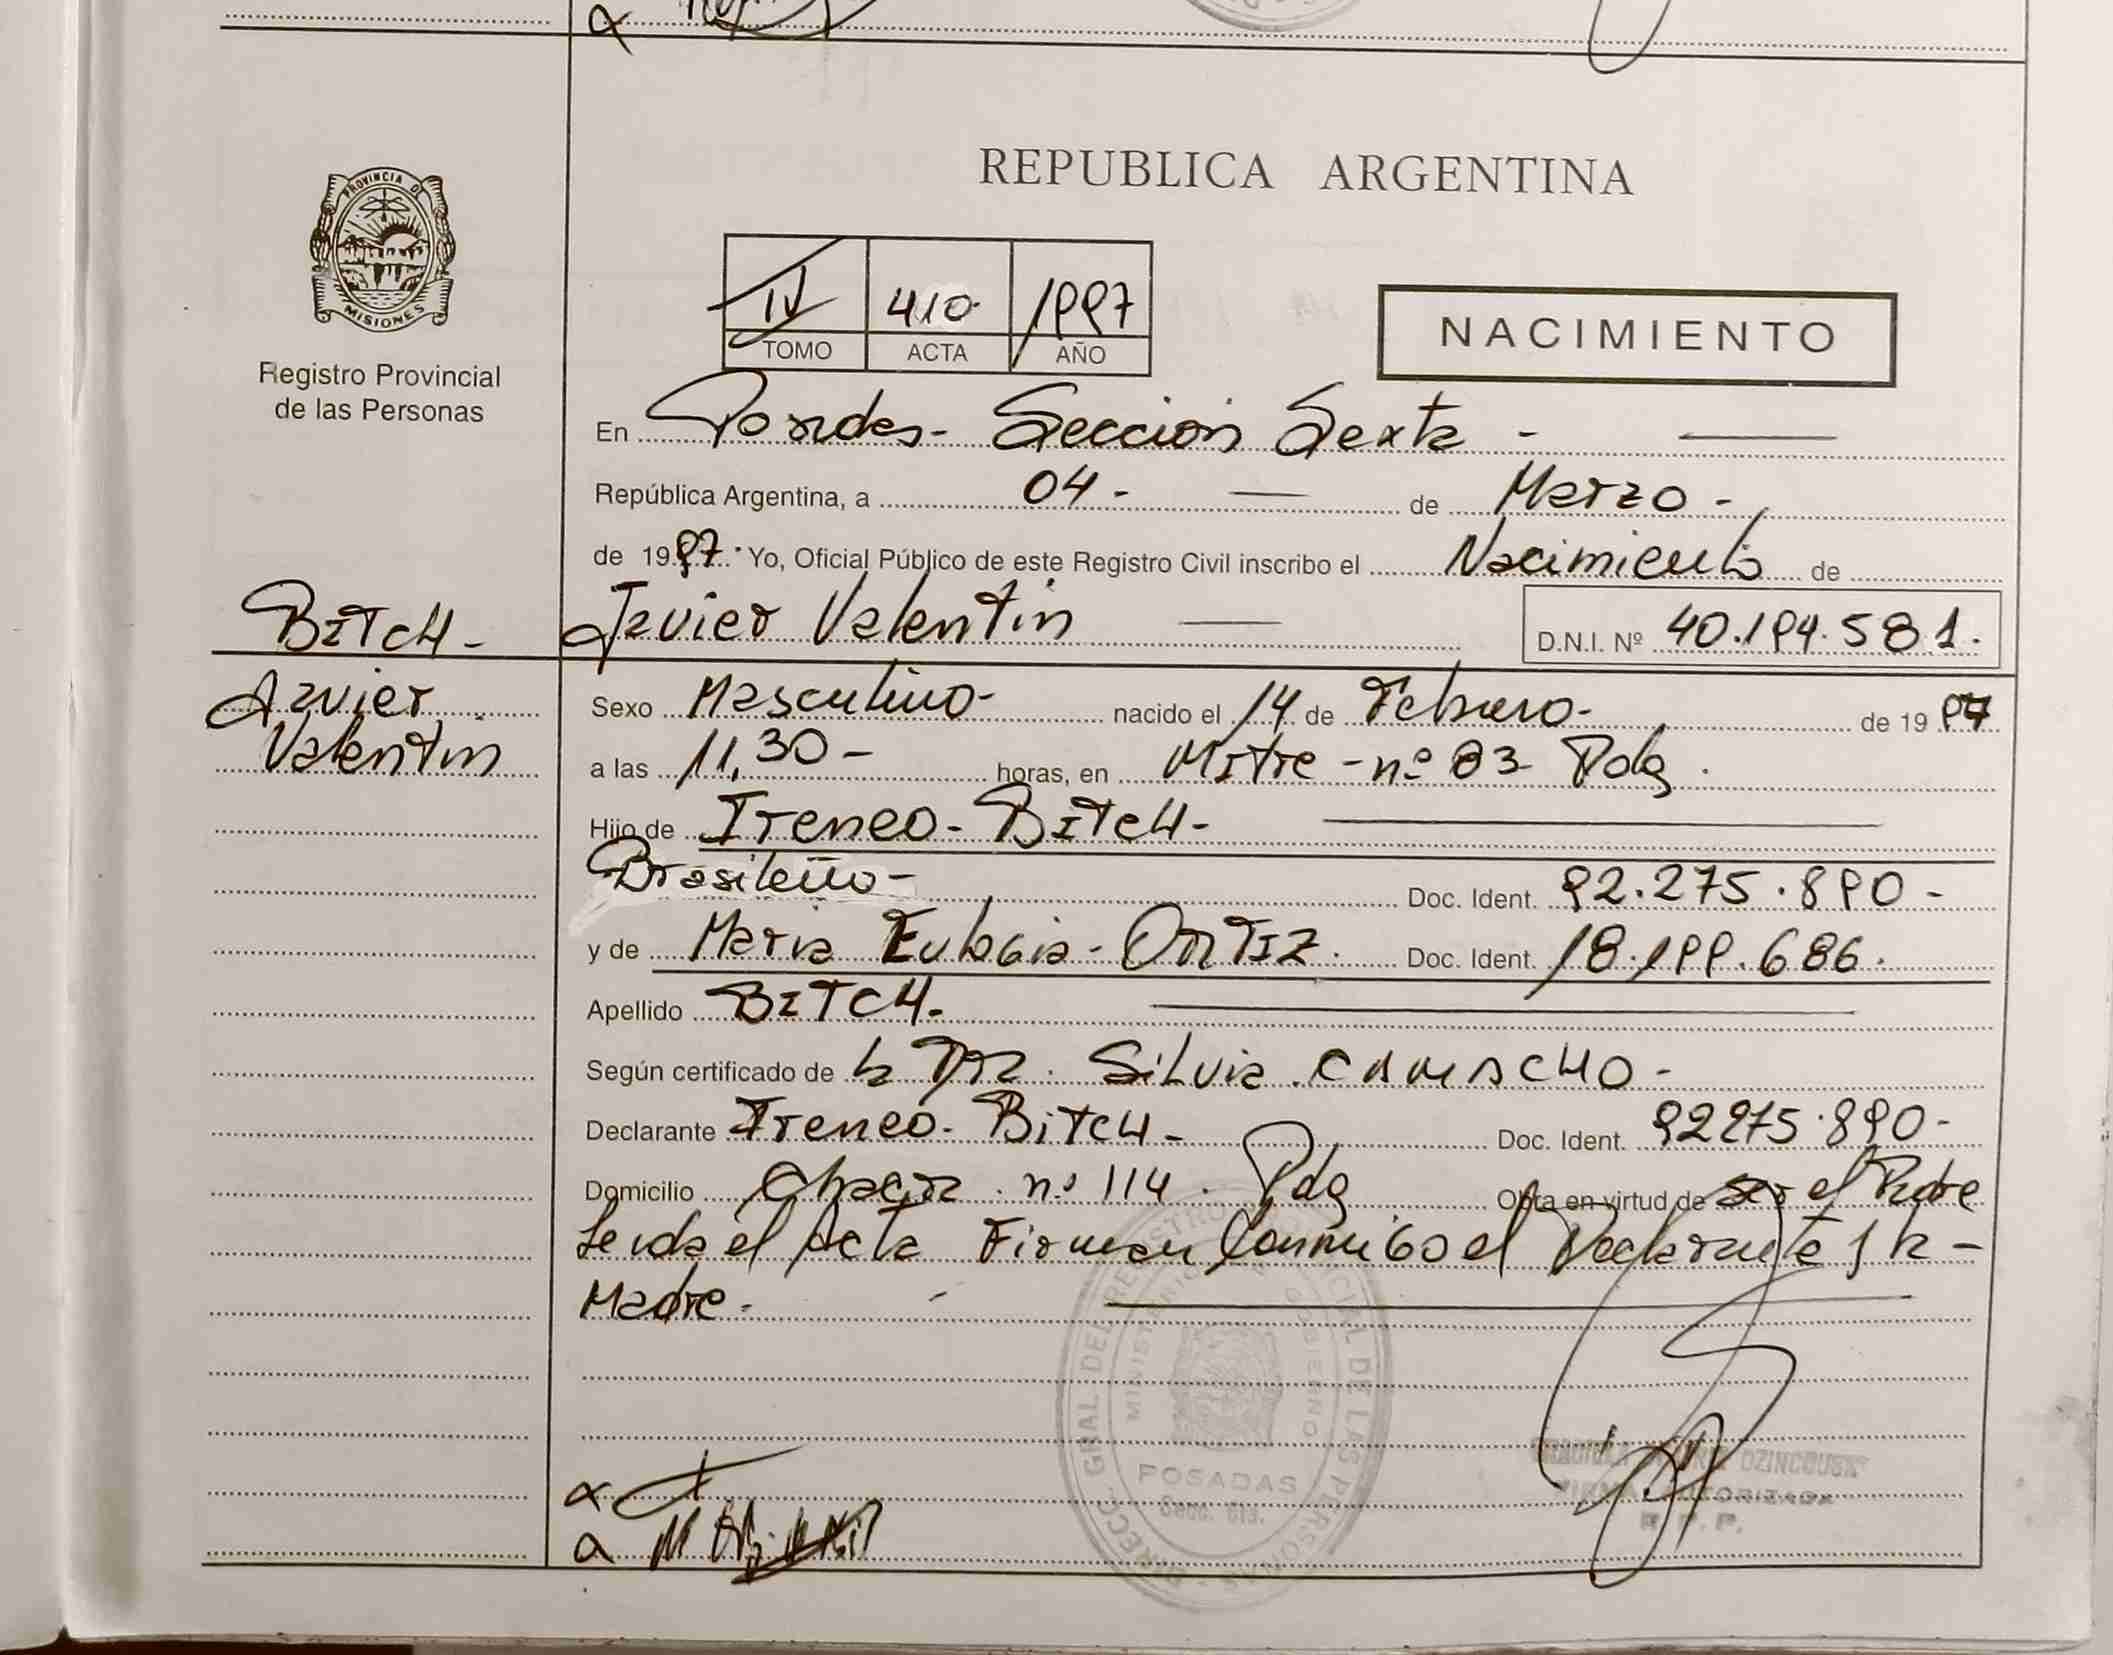 PROVINCIA DE
MISIONES
Registro Provincial
de las Personas
REPUBLICA ARGENTINA
IV 410 1997
TOMO ACTA AÑO
NACIMIENTO
En Posadas - Sección Sexta -
República Argentina, a 04 - de Marzo -
de 1997 Yo, Oficial Público de este Registro Civil inscribo el Nacimiento de
BITCH - Javier Valentin D.N.I. Nº 40.194.581.
Javier
Valentin
Sexo Masculino - nacido el 14 de Febrero - de 1997
a las 11,30 - horas, en Mitre - nº 83 Pdas
Hijo de Ireneo - BITCH -
Brasileño - Doc. Ident. 92.275.890 -
y de Maria Eulogia - ORTIZ. Doc. Ident. 18.199.686.
Apellido BITCH -
Según certificado de la Dra. Silvia CAMACHO -
Declarante Ireneo - BitCH - Doc. Ident. 92275.890 -
Domicilio Chacra nº 114. Pdas Obra en virtud de ser el Padre
Leida el Acta Firman Conmigo el Declarante y la -
Madre.
DIRECC. GRAL. DEL REGISTRO PROVINCIAL DE LAS PERSONAS
MINISTERIO GOBIERNO
POSADAS
Secc. 6ta.
DZINCOUSK
FIRMA AUTORIZADA
R. P. P.